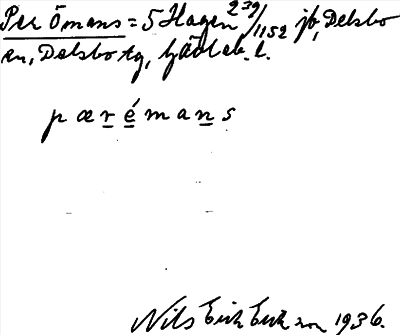 Per Ömans = 5 Hagen 2 39/1152 jb, Delsbo
sn, Delsbo tg, Gävleb. l.
p æ r é m a n s
Nils Erik Eriksson 1936.